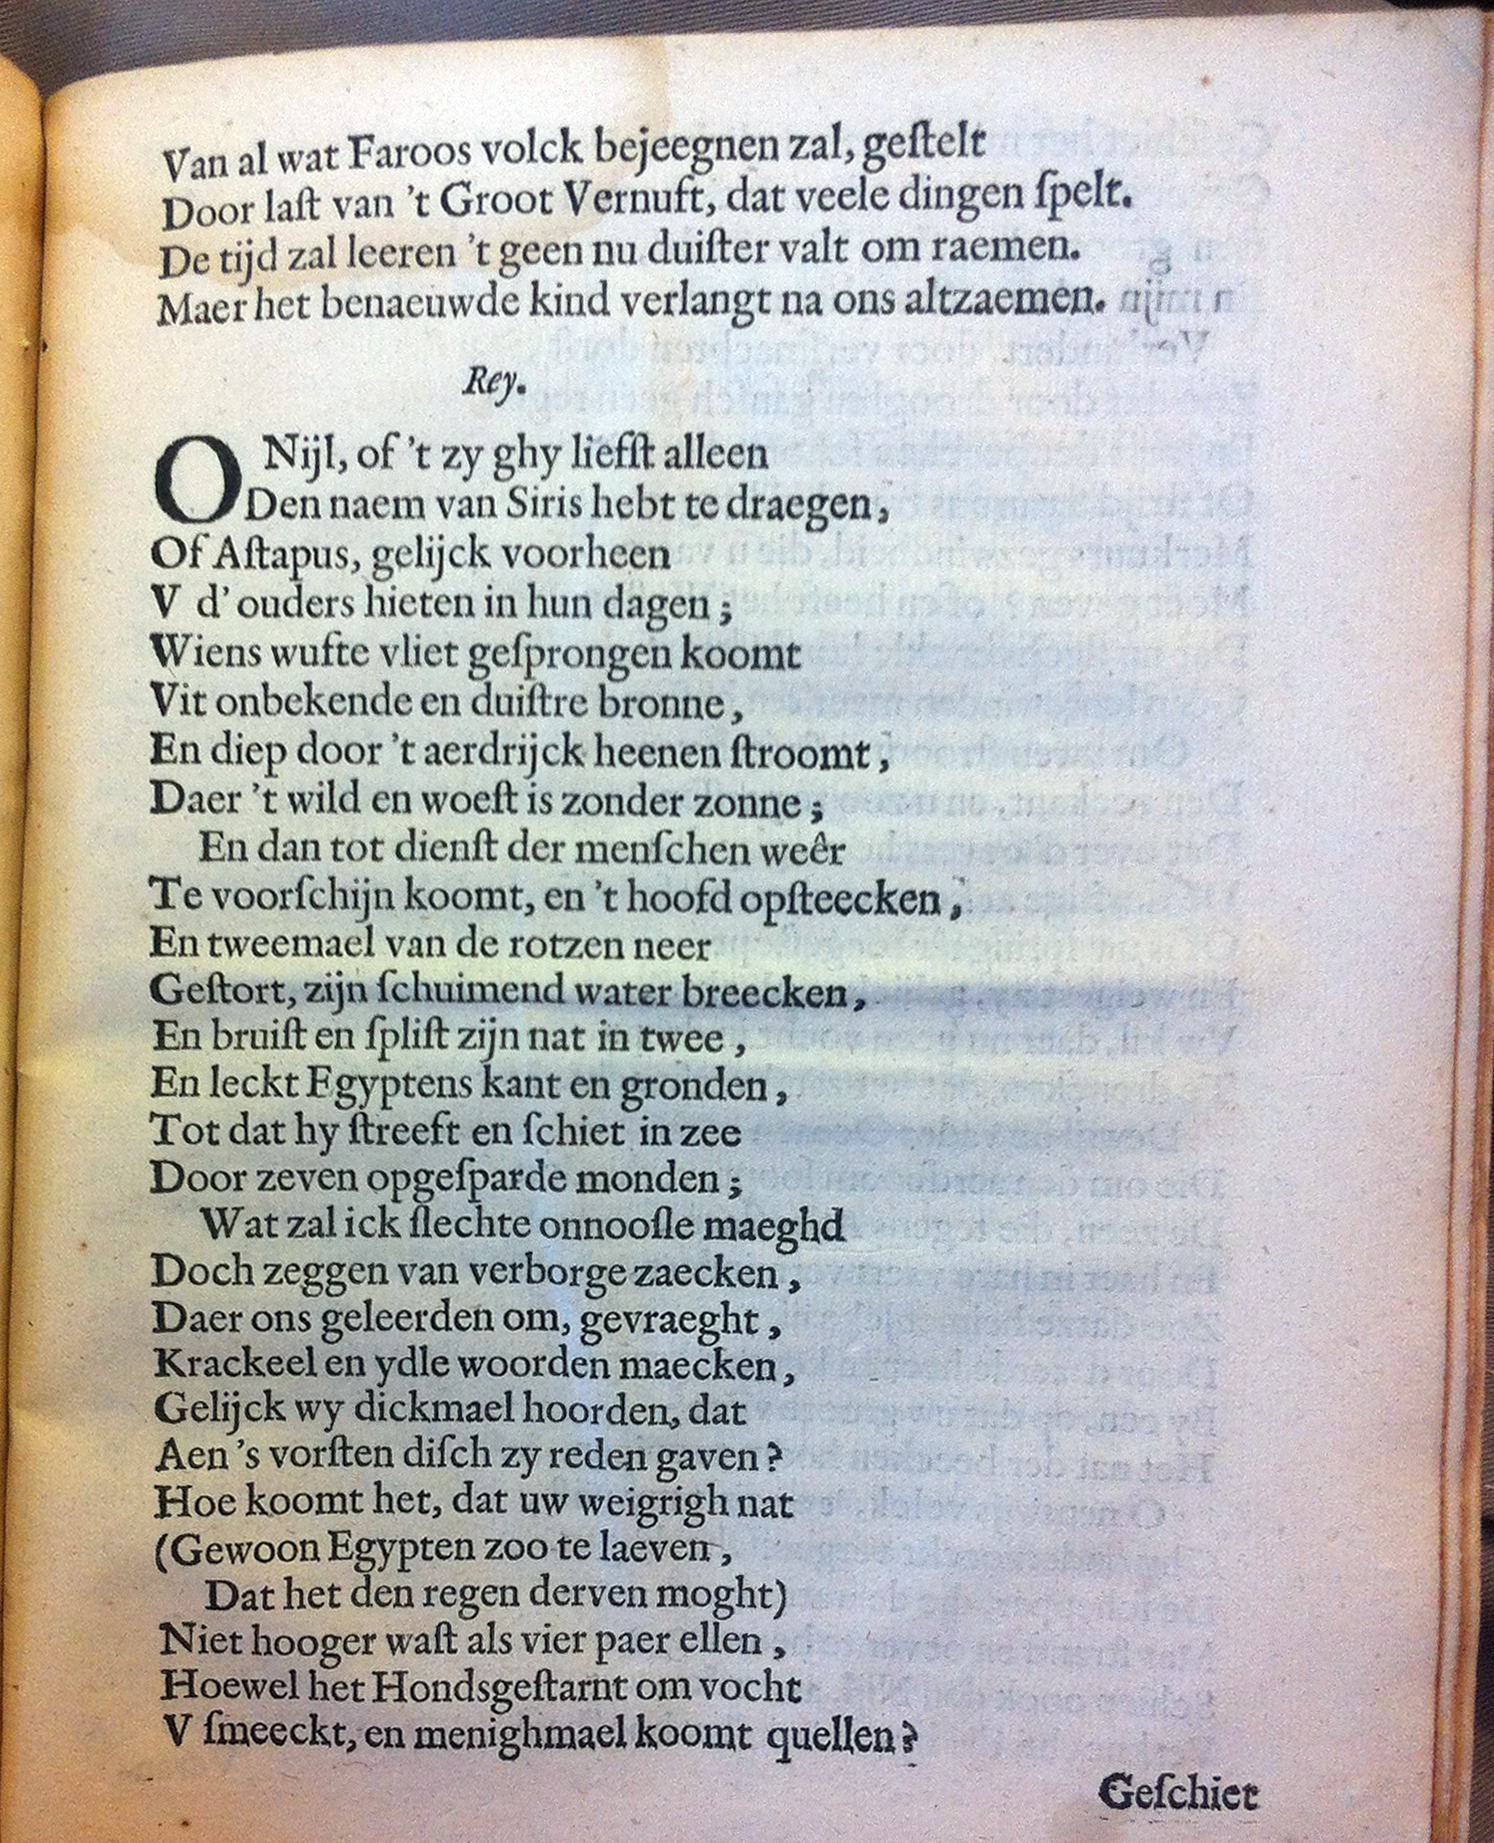 Van al wat Faroos volck bejeegnen zal, geſtelt
Door laſt van 't Groot Vernuft, dat veele dingen ſpelt.
De tijd zal leeren 't geen nu duiſter valt om raemen.
Maer het benaeuwde kind verlangt na ons altzaemen.
Rey.
O Nijl, of 't zy ghy liefſt alleen
Den naem van Siris hebt te draegen,
Of Aſtapus, gelijck voorheen
V d' ouders hieten in hun dagen;
Wiens wufte vliet geſprongen koomt
Vit onbekende en duiſtre bronne,
En diep door 't aerdrijck heenen ſtroomt,
Daer 't wild en woeſt is zonder zonne;
En dan tot dienſt der menſchen weêr
Te voorſchijn koomt, en 't hoofd opſteecken,
En tweemael van de rotzen neer
Geſtort, zijn ſchuimend water breecken,
En bruiſt en ſpliſt zijn nat in twee,
En leckt Egyptens kant en gronden,
Tot dat hy ſtreeft en ſchiet in zee
Door zeven opgeſparde monden;
Wat zal ick ſlechte onnooſle maeghd
Doch zeggen van verborge zaecken,
Daer ons geleerden om, gevraeght,
Krackeel en ydle woorden maecken,
Gelijck wy dickmael hoorden, dat
Aen 's vorſten diſch zy reden gaven?
Hoe koomt het, dat uw weigrigh nat
(Gewoon Egypten zoo te laeven,
Dat het den regen derven moght)
Niet hooger waſt als vier paer ellen,
Hoewel het Hondsgeſtarnt om vocht
V ſmeeckt, en menighmael koomt quellen?
Geſchiet